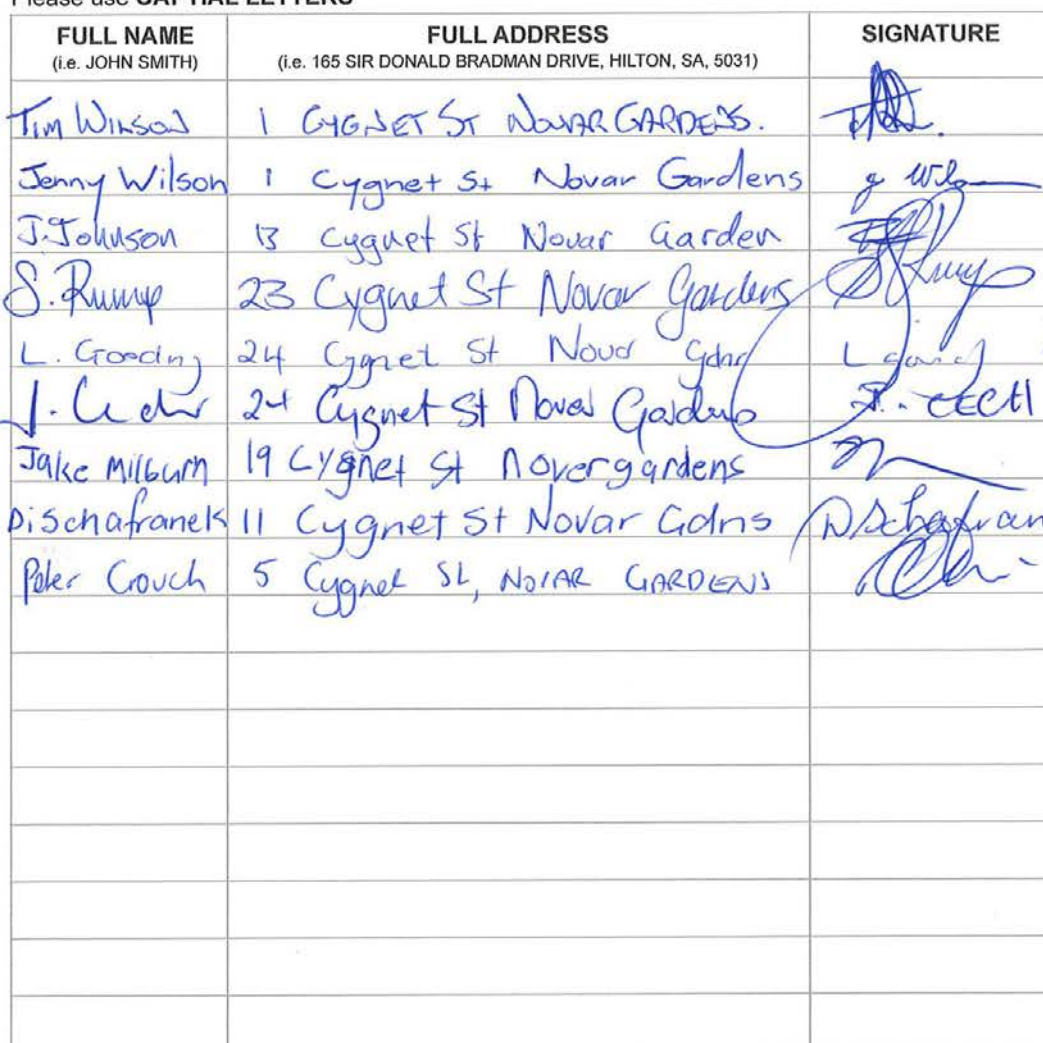 Please use CAPITAL LETTERS
FULL NAME FULL ADDRESS SIGNATURE
(i.e. JOHN SMITH) (i.e. 165 SIR DONALD BRADMAN DRIVE, HILTON, SA, 5031)
Tim Wilson 1 CYGNET ST NOVAR GARDENS.
Jenny Wilson 1 Cygnet St Novar Gardens J Wilson
J. Johnson 13 Cygnet St Novar Garden
S. Rump 23 Cygnet St Novar Gardens S Rump
L. Gooding 24 Cygnet St Gdns L
J. 24 Cygnet St Novar Gardens J. CECH
Jake Milburn 19 Cygnet St Novergardens
Di Schafranek 11 Cygnet St Novar Gdns D Schafran
Peter Crouch 5 Cygnet St, NOVAR GARDENS